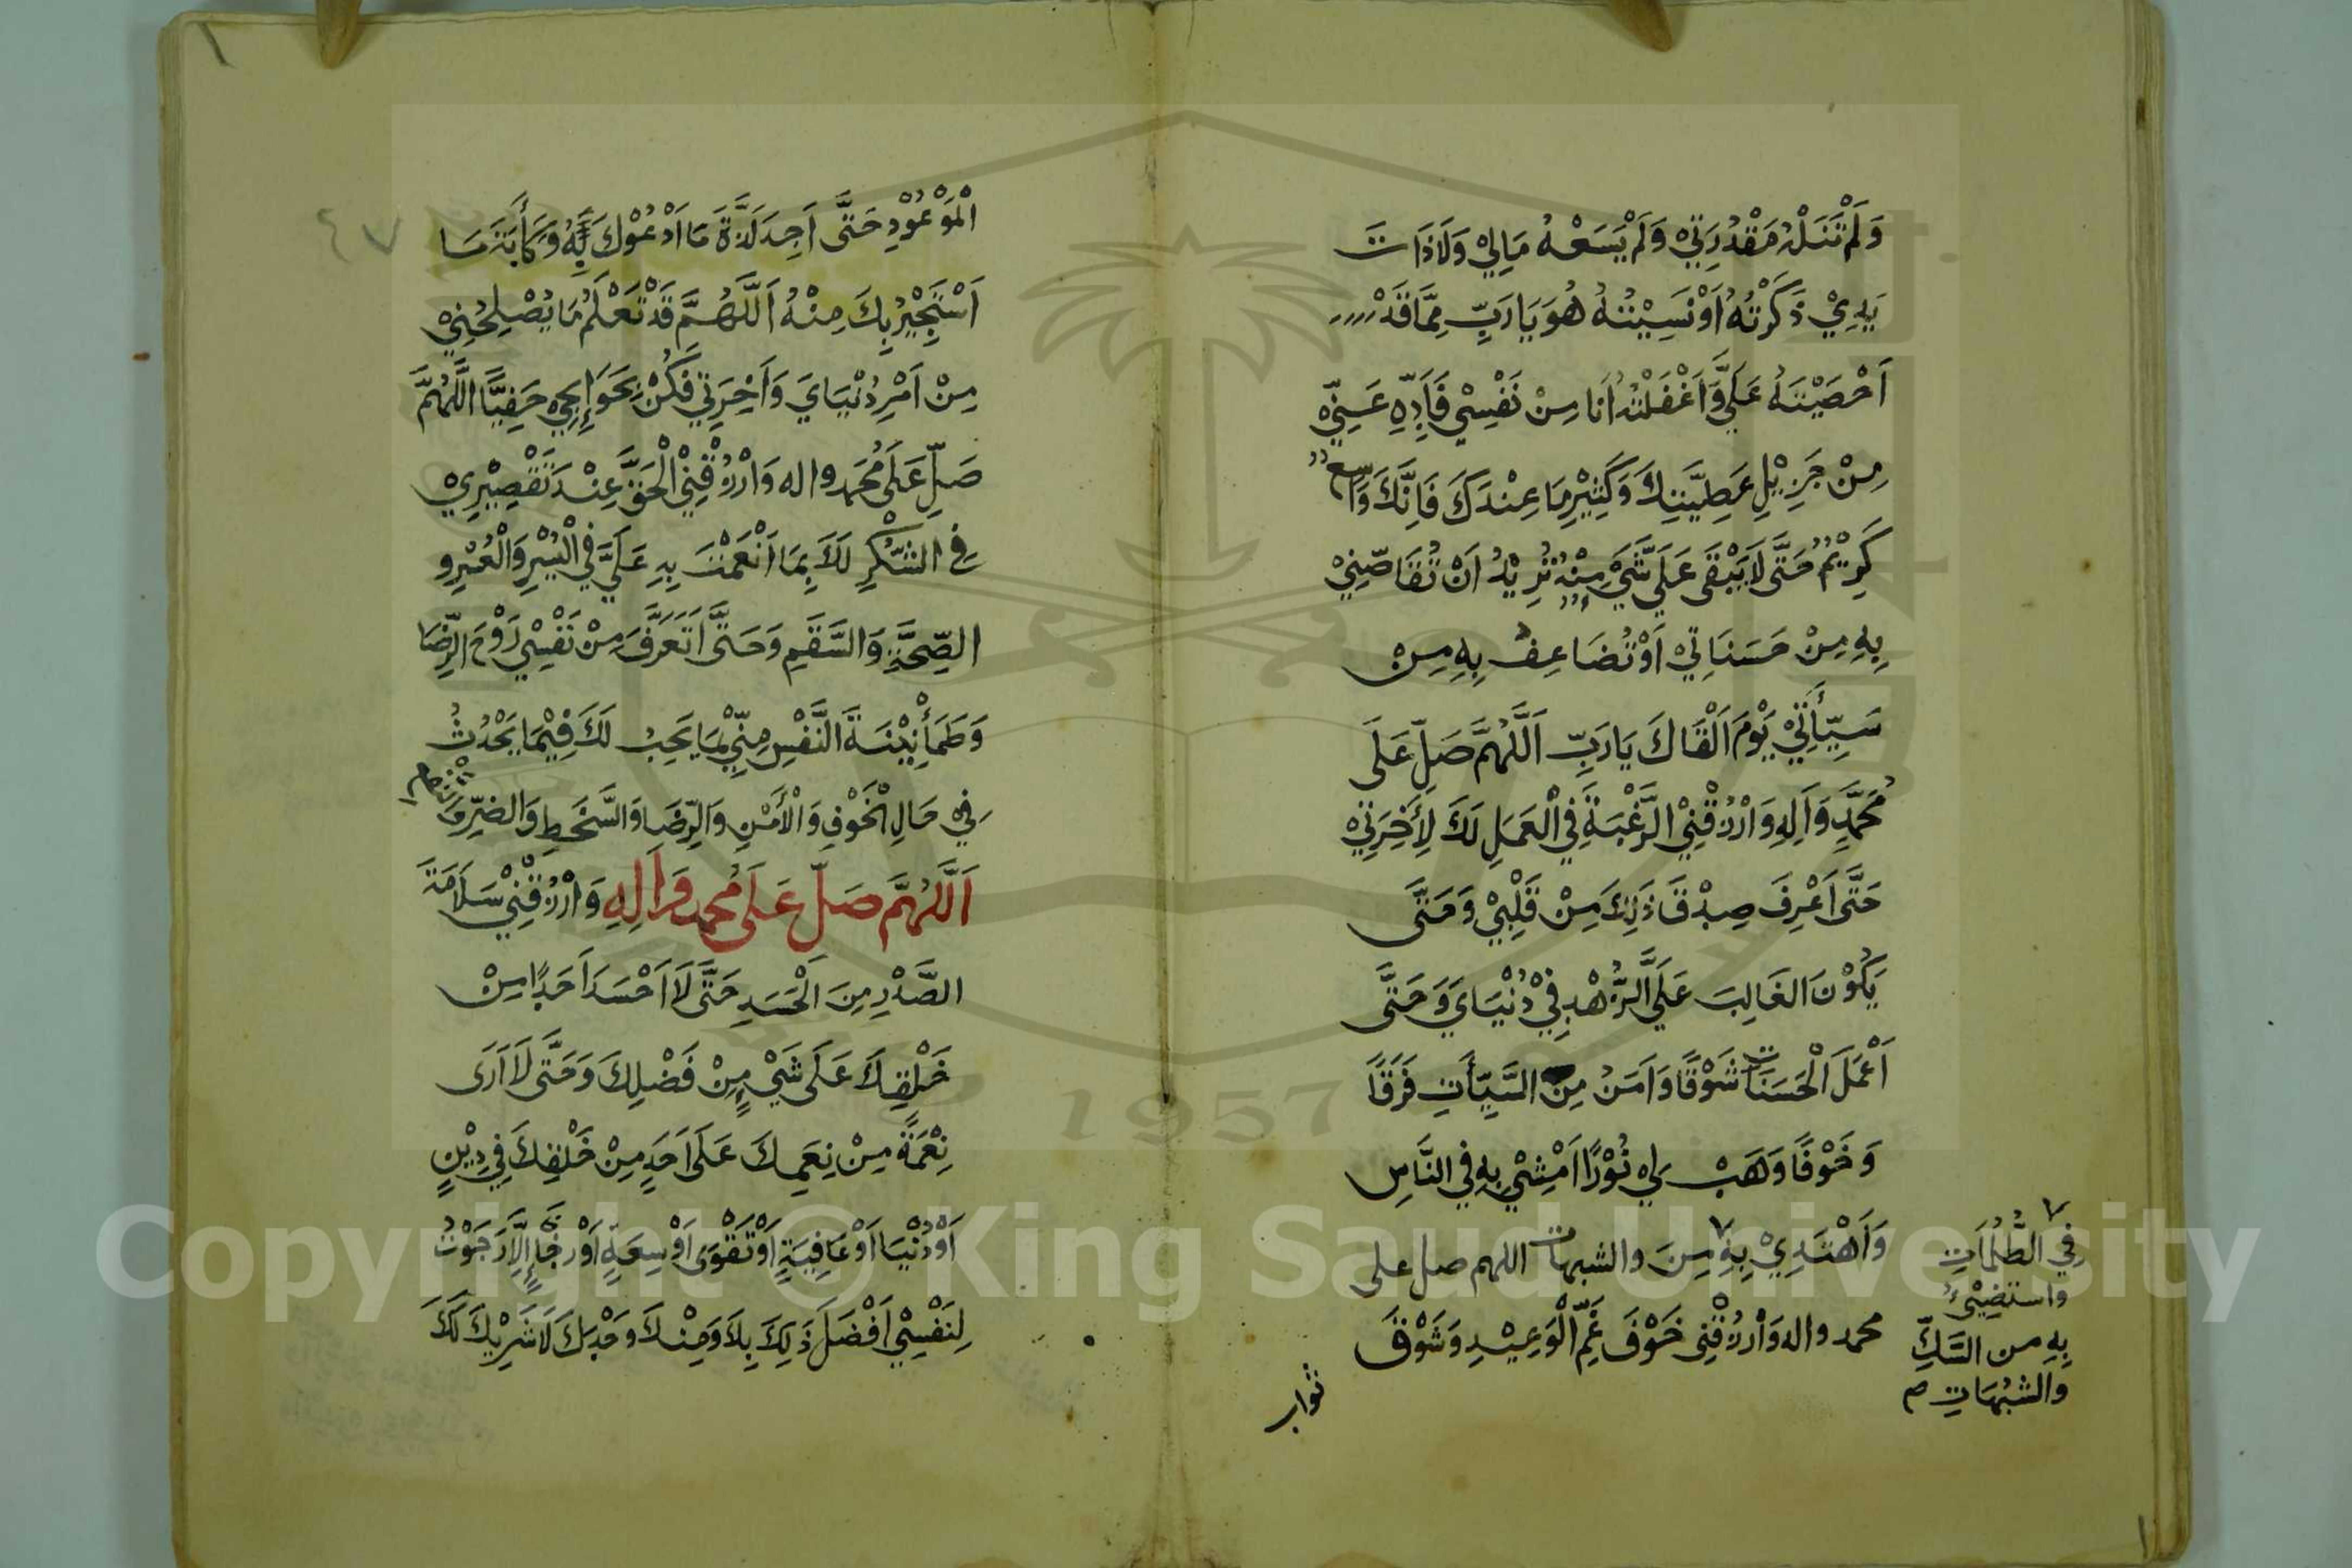 وَلَمْ تَنَلْهُ مَقْدُرَتِيْ وَلَمْ يَسَعْهُ مَالِيْ وَلَا ذَاتَ
يَدِيْ ذَكَرْتُهُ اَوْ نَسِيْتُهُ هُوَ يَا رَبِّ مِمَّا قَدْ
اَحْصَيْتَهُ عَلَيَّ وَاَغْفَلْتُهُ اَنَا مِنْ نَفْسِيْ فَاَدِّهِ عَنِّيْ
مِنْ جَزِيْلِ عَطِيَّتِكَ وَكَثِيْرِ مَا عِنْدَكَ فَاِنَّكَ وَاسِعٌ
كَرِيْمٌ حَتَّى لَا يَبْقَى عَلَيَّ شَيْءٌ مِنْهُ تُرِيْدُ اَنْ تُقَاصَّنِيْ
بِهِ مِنْ حَسَنَاتِيْ اَوْ تُضَاعِفَ بِهِ مِنْ
سَيِّأَتِيْ يَوْمَ اَلْقَاكَ يَا رَبِّ اَللَّهُمَّ صَلِّ عَلَى
مُحَمَّدٍ وَاَلِهِ وَارْزُقْنِيْ الرَّغْبَةَ فِيْ الْعَمَلِ لَكَ لِأَخِرَتِيْ
حَتَّى اَعْرِفَ صِدْقَ ذَلِكَ مِنْ قَلْبِيْ وَحَتَّى
يَكُوْنَ الغَالِبَ عَلَيَّ الزُّهْدِ فِيْ دُنْيَايَ وَحَتَّى
اَعْمَلَ الْحَسَنَاتِ شَوْقًا وَاَمَنُ مِنَ السَّيِّأَتِ فَرَقًا
وَخَوْفًا وَهَبْ لِيْ نُوْرًا اَمْشِيْ بِهِ فِي النَّاسِ
وَاَهْتَدِيْ بِهِ ٧ مِنَ والشبهات اللهم صل على
٧ فِي الظُّلُمَاتِ
واستضِيْئُ
بِهِ من الشَّكِّ
والشبُهَاتِ ص
محمد واله وَارْزُقْنِى خَوْفَ غَمِّ الْوَعِيْدِ وَشَوْقَ
ثواب
٤٧
الْمَوْعُوْدِ حَتَّى اَجِدَ لَذَّةَ مَا اَدْعُوْكَ لَهُ وَكَأْبَةَ مَا
اَسْتَجِيْرُ بِكَ مِنْهُ اَللَّهُمَّ قَدْ تَعْلَمُ مَا يُصْلِحُنِيْ
مِنْ اَمْرِ دُنْيَايَ وَاَخِرَتِيْ فَكُنْ بِحَوَائِجِيْ حَفِيًّا اللَّهُمَّ
صَلِّ عَلَى مُحَمد واله وَارْزُقْنِيْ الْحَقَّ عِنْدَ تَقْصِيْرِيْ
فِي الشُّكْرِ لَكَ بِمَا اَنْعَمْتَ بِهِ عَلَيَّ فِيْ الْيُسْرِ وَالْعُسْرِ و
الصِّحَّةِ وَالسَّقَمِ وَحَتَّى اَتَعَرَّفَ مِنْ نَفْسِيْ رَوْحَ الرِّضَا
وَطَمَأْنِيْنَةَ النَّفْسِ مِنِّيْ بِمَا يَجِبُ لَكَ فِيْمَا يَحْدُثُ
فِيْ حَالِ الْخَوْفِ وَالْأَمْنِ وَالرِّضَا وَالسَّخَطِ وَالضَّرِّ وَالنفع
اَللَّهُمَّ صَلِّ عَلَى مُحمد وَاَلِهِ وَارْزُقْنِيْ سَلَامَةَ
الصَّدْرِ مِنَ الْحَسَدِ حَتَّى لَا اَحْسَدَ اَحَدًا مِنْ
خَلْقِكَ عَلَى شَيْءٍ مِنْ فَضْلِكَ وَحَتَّى لَا اَرَى
نِعْمَةً مِنْ نِعَمِكَ عَلَى اَحَدٍ مِنْ خَلْقِكَ فِيْ دِيْنٍ
اَوْ دُنْيَا اَوْ عَافِيَةٍ اَوْ تَقْوَى اَوْ سِعَةٍ اَوْ رَخَاءٍ اِلَّا رَجَوْتُ
لِنَفْسِيْ اَفْضَلَ ذَلِكَ بِكَ وَمِنْكَ وَحْدَكَ لَا شَرِيْكَ لَكَ
1957
Copyright © King Saud University